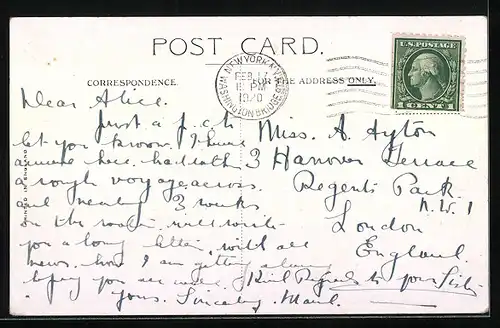 POST CARD.
CORRESPONDENCE.
FOR THE ADDRESS ONLY.
NEW YORK, N.Y.
FEB 17
PM
1920
WASHINGTON BRIDGE
U.S. POSTAGE
1 CENT 1
Dear Alice.
Just a p.c. to
let you know I have
arrived here. had rather
a rough voyage across
and nearly 3 weeks
on the water. will write
you a long letter, with all
news, how I am getting along
hoping you are
Yours. Sincerely. Maud.
Kind Regards to your Sister
Miss. A. Ayton
3 Hanover Terrace
Regents Park
N.W. 1
London
England.
PRINTED IN ENGLAND